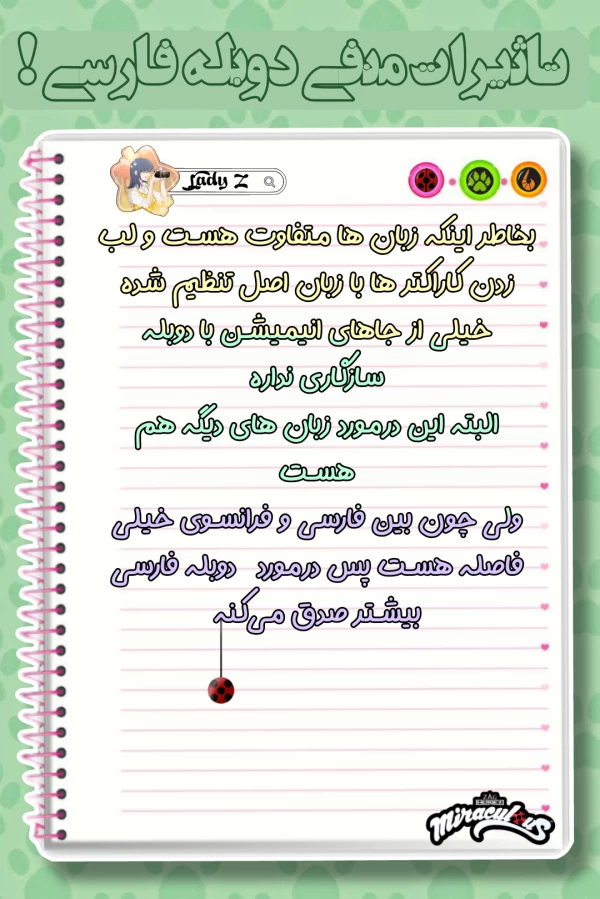 تاثیرات منفی دوبله فارسی !
Lady Z
بخاطر اینکه زبان ها متفاوت هست و لب
زدن کاراکتر ها با زبان اصل تنظیم شده
خیلی از جاهای انیمیشن با دوبله
سازگاری نداره
البته این درمورد زبان های دیگه هم
هست
ولی چون بین فارسی و فرانسوی خیلی
فاصله هست پس درمورد دوبله فارسی
بیشتر صدق می‌کنه
ZAG
HEROEZ
Miraculous